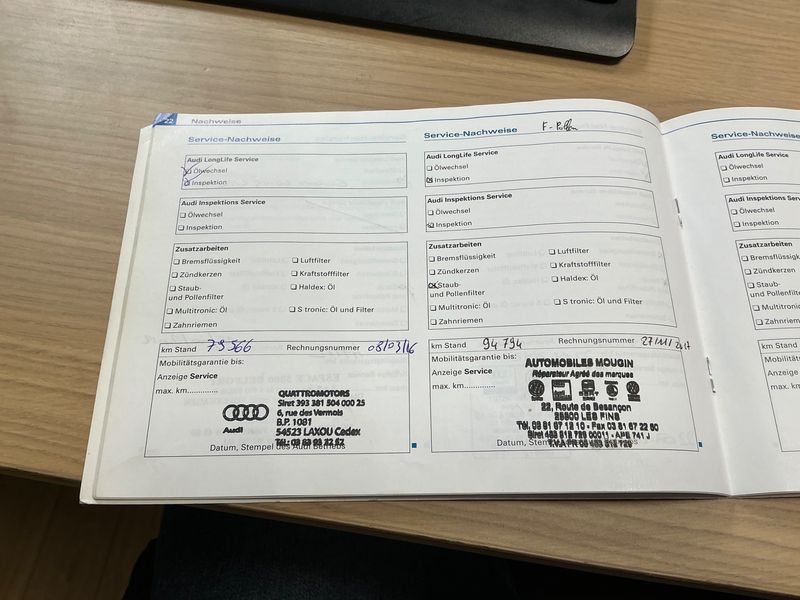 22 Nachweise
Service-Nachweise
Audi LongLife Service
Ölwechsel
Inspektion
Audi Inspektions Service
Ölwechsel
Inspektion
Zusatzarbeiten
Bremsflüssigkeit
Luftfilter
Zündkerzen
Kraftstofffilter
Staub-
und Pollenfilter
Haldex: Öl
Multitronic: Öl
S tronic: Öl und Filter
Zahnriemen
km Stand 79566 Rechnungsnummer 08/03/16
Mobilitätsgarantie bis:
Anzeige Service
max. km.............
Audi
QUATTROMOTORS
Siret 393 381 504 000 25
6, rue des Vermois
B.P. 1081
54523 LAXOU Cedex
Datum, Stempel des Audi Betriebs
Service-Nachweise F-Pollen
Audi LongLife Service
Ölwechsel
Inspektion
Audi Inspektions Service
Ölwechsel
Inspektion
Zusatzarbeiten
Bremsflüssigkeit
Luftfilter
Zündkerzen
Kraftstofffilter
Staub-
und Pollenfilter
Haldex: Öl
Multitronic: Öl
S tronic: Öl und Filter
Zahnriemen
km Stand 94794 Rechnungsnummer 27/11/2017
Mobilitätsgarantie bis:
Anzeige Service
max. km.............
AUTOMOBILES MOUGIN
Réparateur Agréé des marques
22, Route de Besançon
25800 LES FINS
Tél. 03 81 67 12 10 - Fax 03 81 67 22 80
Datum, Stem
Service-Nachweise
Audi LongLife Service
Ölwechsel
Inspektion
Audi Inspektions Service
Ölwechsel
Inspektion
Zusatzarbeiten
Bremsflüssigkeit
Zündkerzen
Staub-
und Pollenfilter
Multitronic: Öl
Zahnriemen
km Stand
Mobilitätsgarantie
Anzeige Service
max. km